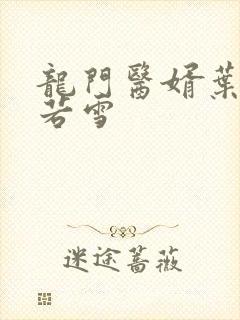 龍門醫婿葉
若雪
迷途薔薇